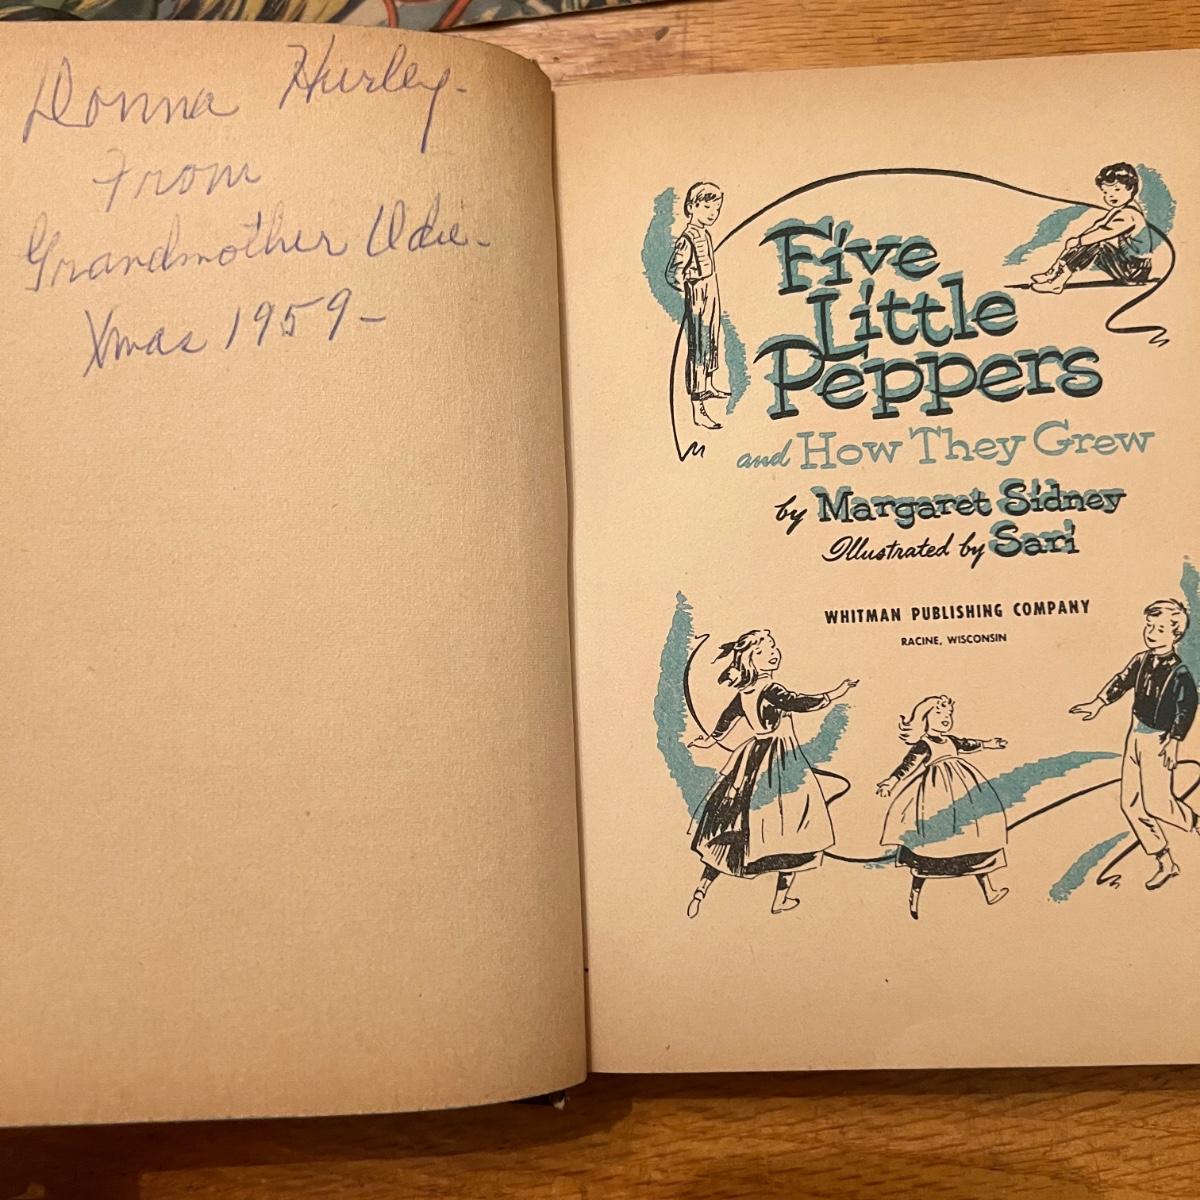 Donna Hurley-
From
Grandmother Odie-
Xmas 1959-
Five
Little
Peppers
and How They Grew
by Margaret Sidney
Illustrated by Sari
WHITMAN PUBLISHING COMPANY
RACINE, WISCONSIN